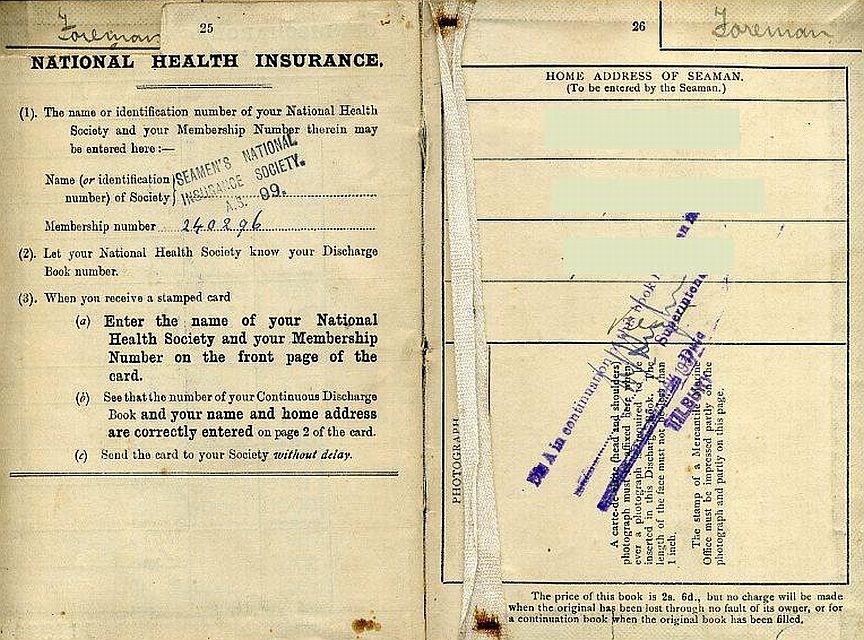 Foreman
25
NATIONAL HEALTH INSURANCE.
(1). The name or identification number of your National Health
Society and your Membership Number therein may
be entered here :—
Name (or identification
number) of Society
SEAMEN'S NATIONAL
INSURANCE SOCIETY.
A.S. 99.
Membership number 240296
(2). Let your National Health Society know your Discharge
Book number.
(3). When you receive a stamped card
(a) Enter the name of your National
Health Society and your Membership
Number on the front page of the
card.
(b) See that the number of your Continuous Discharge
Book and your name and home address
are correctly entered on page 2 of the card.
(c) Send the card to your Society without delay.
26
Foreman
HOME ADDRESS OF SEAMAN.
(To be entered by the Seaman.)
PHOTOGRAPH
A carte-de- (head and shoulders)
photograph must affixed here when
ever a photograph is required to be
inserted in this Discharge Book. The
length of the face must not be less than
1 inch.
The stamp of a Mercantile Marine
Office must be impressed partly on the
photograph and partly on this page.
A in continuation
book
Superinten
TILBURY
The price of this book is 2s. 6d., but no charge will be made
when the original has been lost through no fault of its owner, or for
a continuation book when the original book has been filled.